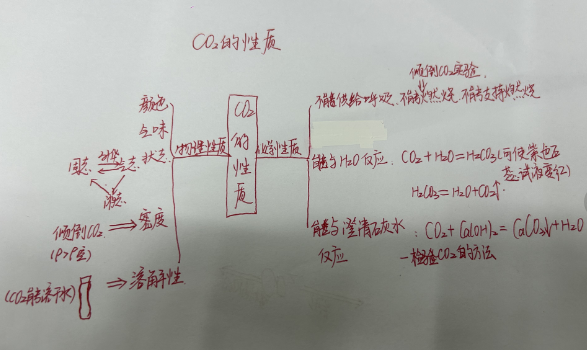 CO₂的性质
颜色
气味
状态
固态 升华 气态
液态
倾倒CO₂ ⇒ 密度
(ρ>ρ空)
(CO₂能溶于水) ⇒ 溶解性
物理性质
CO₂的性质
化学性质
倾倒CO₂实验
不能供给呼吸、不能燃烧、不能支持燃烧
能与H₂O反应. CO₂+H₂O=H₂CO₃(可使紫色石
蕊试液变红)
H₂CO₃=H₂O+CO₂↑
能与澄清石灰水 : CO₂+Ca(OH)₂=CaCO₃↓+H₂O
反应 —检验CO₂的方法